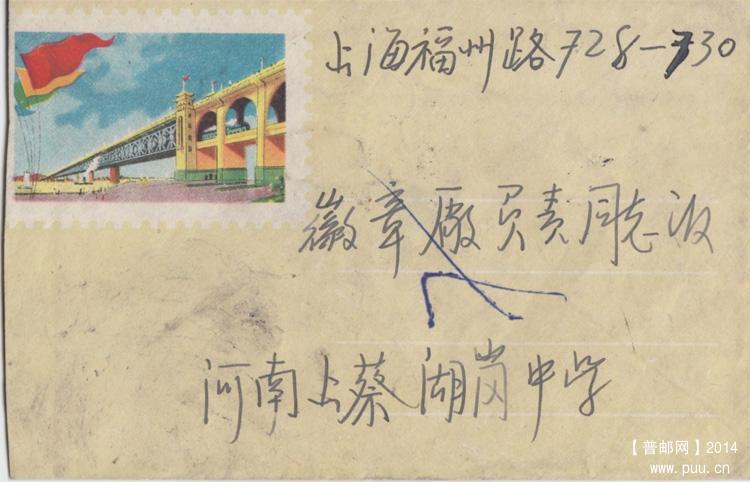 上海福州路728-730
徽章厰负责同志收
河南上蔡湖岗中学
【普邮网】2014
www.puu.cn